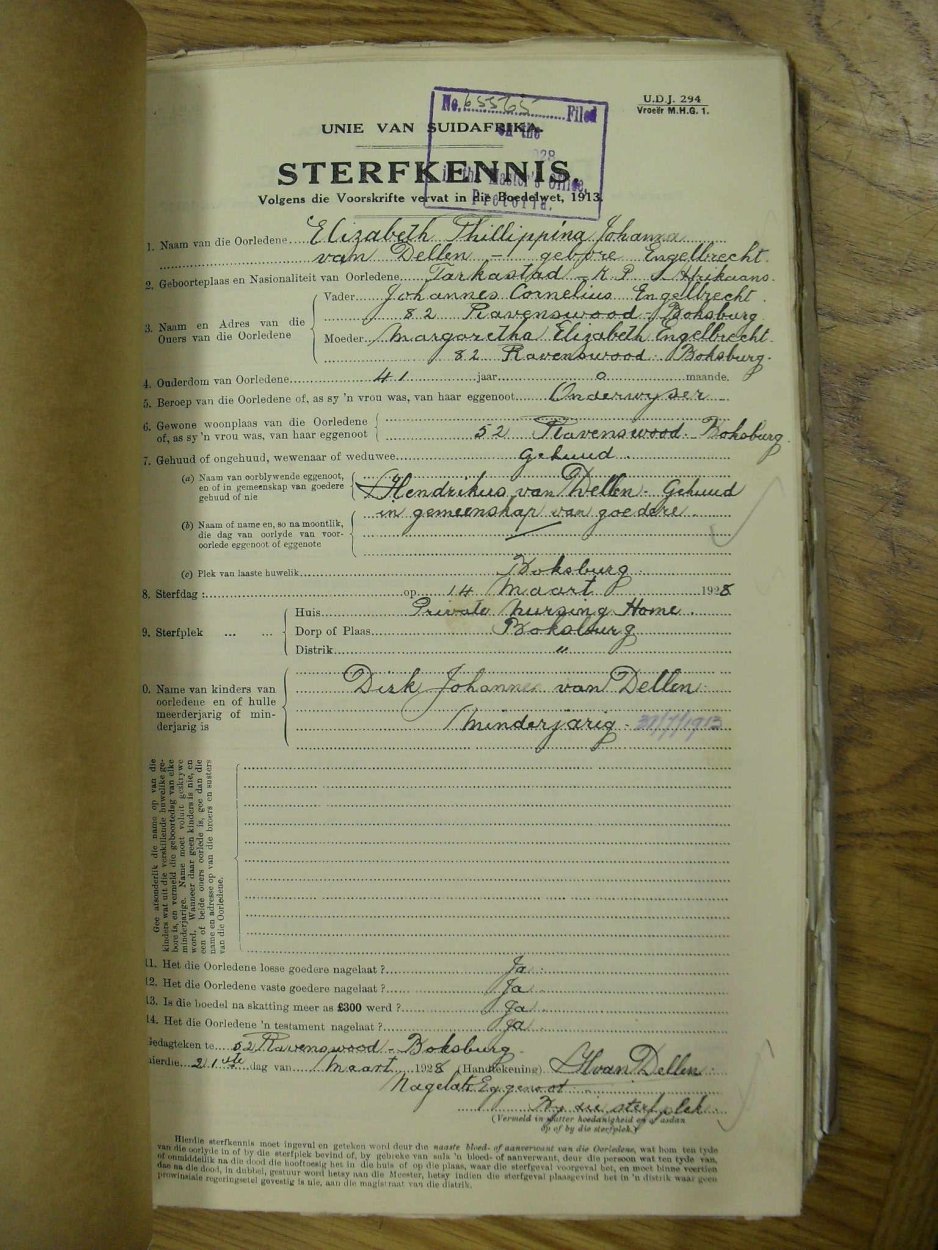 U.D.J. 294
Vroeër M.H.G. 1.
No. 65565 Filed
on the
in the Master's Office,
Pretoria.
UNIE VAN SUIDAFRIKA.
STERFKENNIS,
Volgens die Voorskrifte vervat in die Boedelwet, 1913.
1. Naam van die Oorledene Elizabeth Phillippina Johanna
van Dellen - gebore Engelbrecht.
2. Geboorteplaas en Nasionaliteit van Oorledene Tarkastad - K.P. Afrikaans.
3. Naam en Adres van die Ouers van die Oorledene
Vader Johannes Cornelius Engelbrecht.
82 Ravenswood - Boksburg
Moeder Margaretha Elizabeth Engelbrecht.
82 Ravenswood. Boksburg.
4. Ouderdom van Oorledene 41 jaar 0 maande.
5. Beroep van die Oorledene of, as sy 'n vrou was, van haar eggenoot Onderwyser
6. Gewone woonplaas van die Oorledene
of, as sy 'n vrou was, van haar eggenoot 52 Ravenswood. Boksburg.
7. Gehuud of ongehuud, wewenaar of weduwee. Gehuud.
(a) Naam van oorblywende eggenoot,
en of in gemeenskap van goedere
gehuud of nie
Hendrikus van Dellen. Gehuud
in gemeenskap van goedere.
(b) Naam of name en, so na moontlik,
die dag van oorlyde van voor-
oorlede eggenoot of eggenote
(c) Plek van laaste huwelik Boksburg.
8. Sterfdag : op 14 Maart 1928
9. Sterfplek
Huis Private Nursing Home.
Dorp of Plaas Boksburg
Distrik "
0. Name van kinders van
oorledene en of hulle
meerderjarig of min-
derjarig is
Dirk Johannes van Dellen
Minderjarig - /7/1913
Gee afsonderlik die name op van die
kinders wat uit die verskillende huwelike ge-
bore is, en vermeld die geboortedag van elke
minderjarige. Name moet voluit geskrywe
word. Wanneer daar geen kinders is nie, en
een of beide ouers oorlede is, gee dan die
name en adresse op van die broers en susters
van die Oorledene.
11. Het die Oorledene losse goedere nagelaat ? Ja
12. Het die Oorledene vaste goedere nagelaat ? Ja
13. Is die boedel na skatting meer as £300 werd ? Ja
14. Het die Oorledene 'n testament nagelaat ? Ja
Gedagteken te 52 Ravenswood - Boksburg
hierdie 21ste dag van Maart 1928 (Handtekening) HvanDellen
Nagelate Eggenoot
By die sterfplek
(Vermeld in watter hoedanigheid en of asdan
op of by die sterfplek.)
Hierdie sterfkennis moet ingeval en geteken word deur die naaste bloed- of aanverwant van die Oorledene, wat hom ten tyde
van die oorlyde in of by die sterfplek bevind of, by gebreke van sulk 'n bloed- of aanverwant, deur die persoon wat ten tyde van,
of onmiddelik na die dood die hooftoesig het in die huis of op die plaas, waar die sterfgeval voorgeval het, en moet binne veertien
dae na die dood, in dubbel, gestuur word hetsy aan die Meester, hetsy indien die sterfgeval plaasgevind het in 'n distrik waar geen
provinsiale regeringsetel gevestig is nie, aan die magistraat van die distrik.